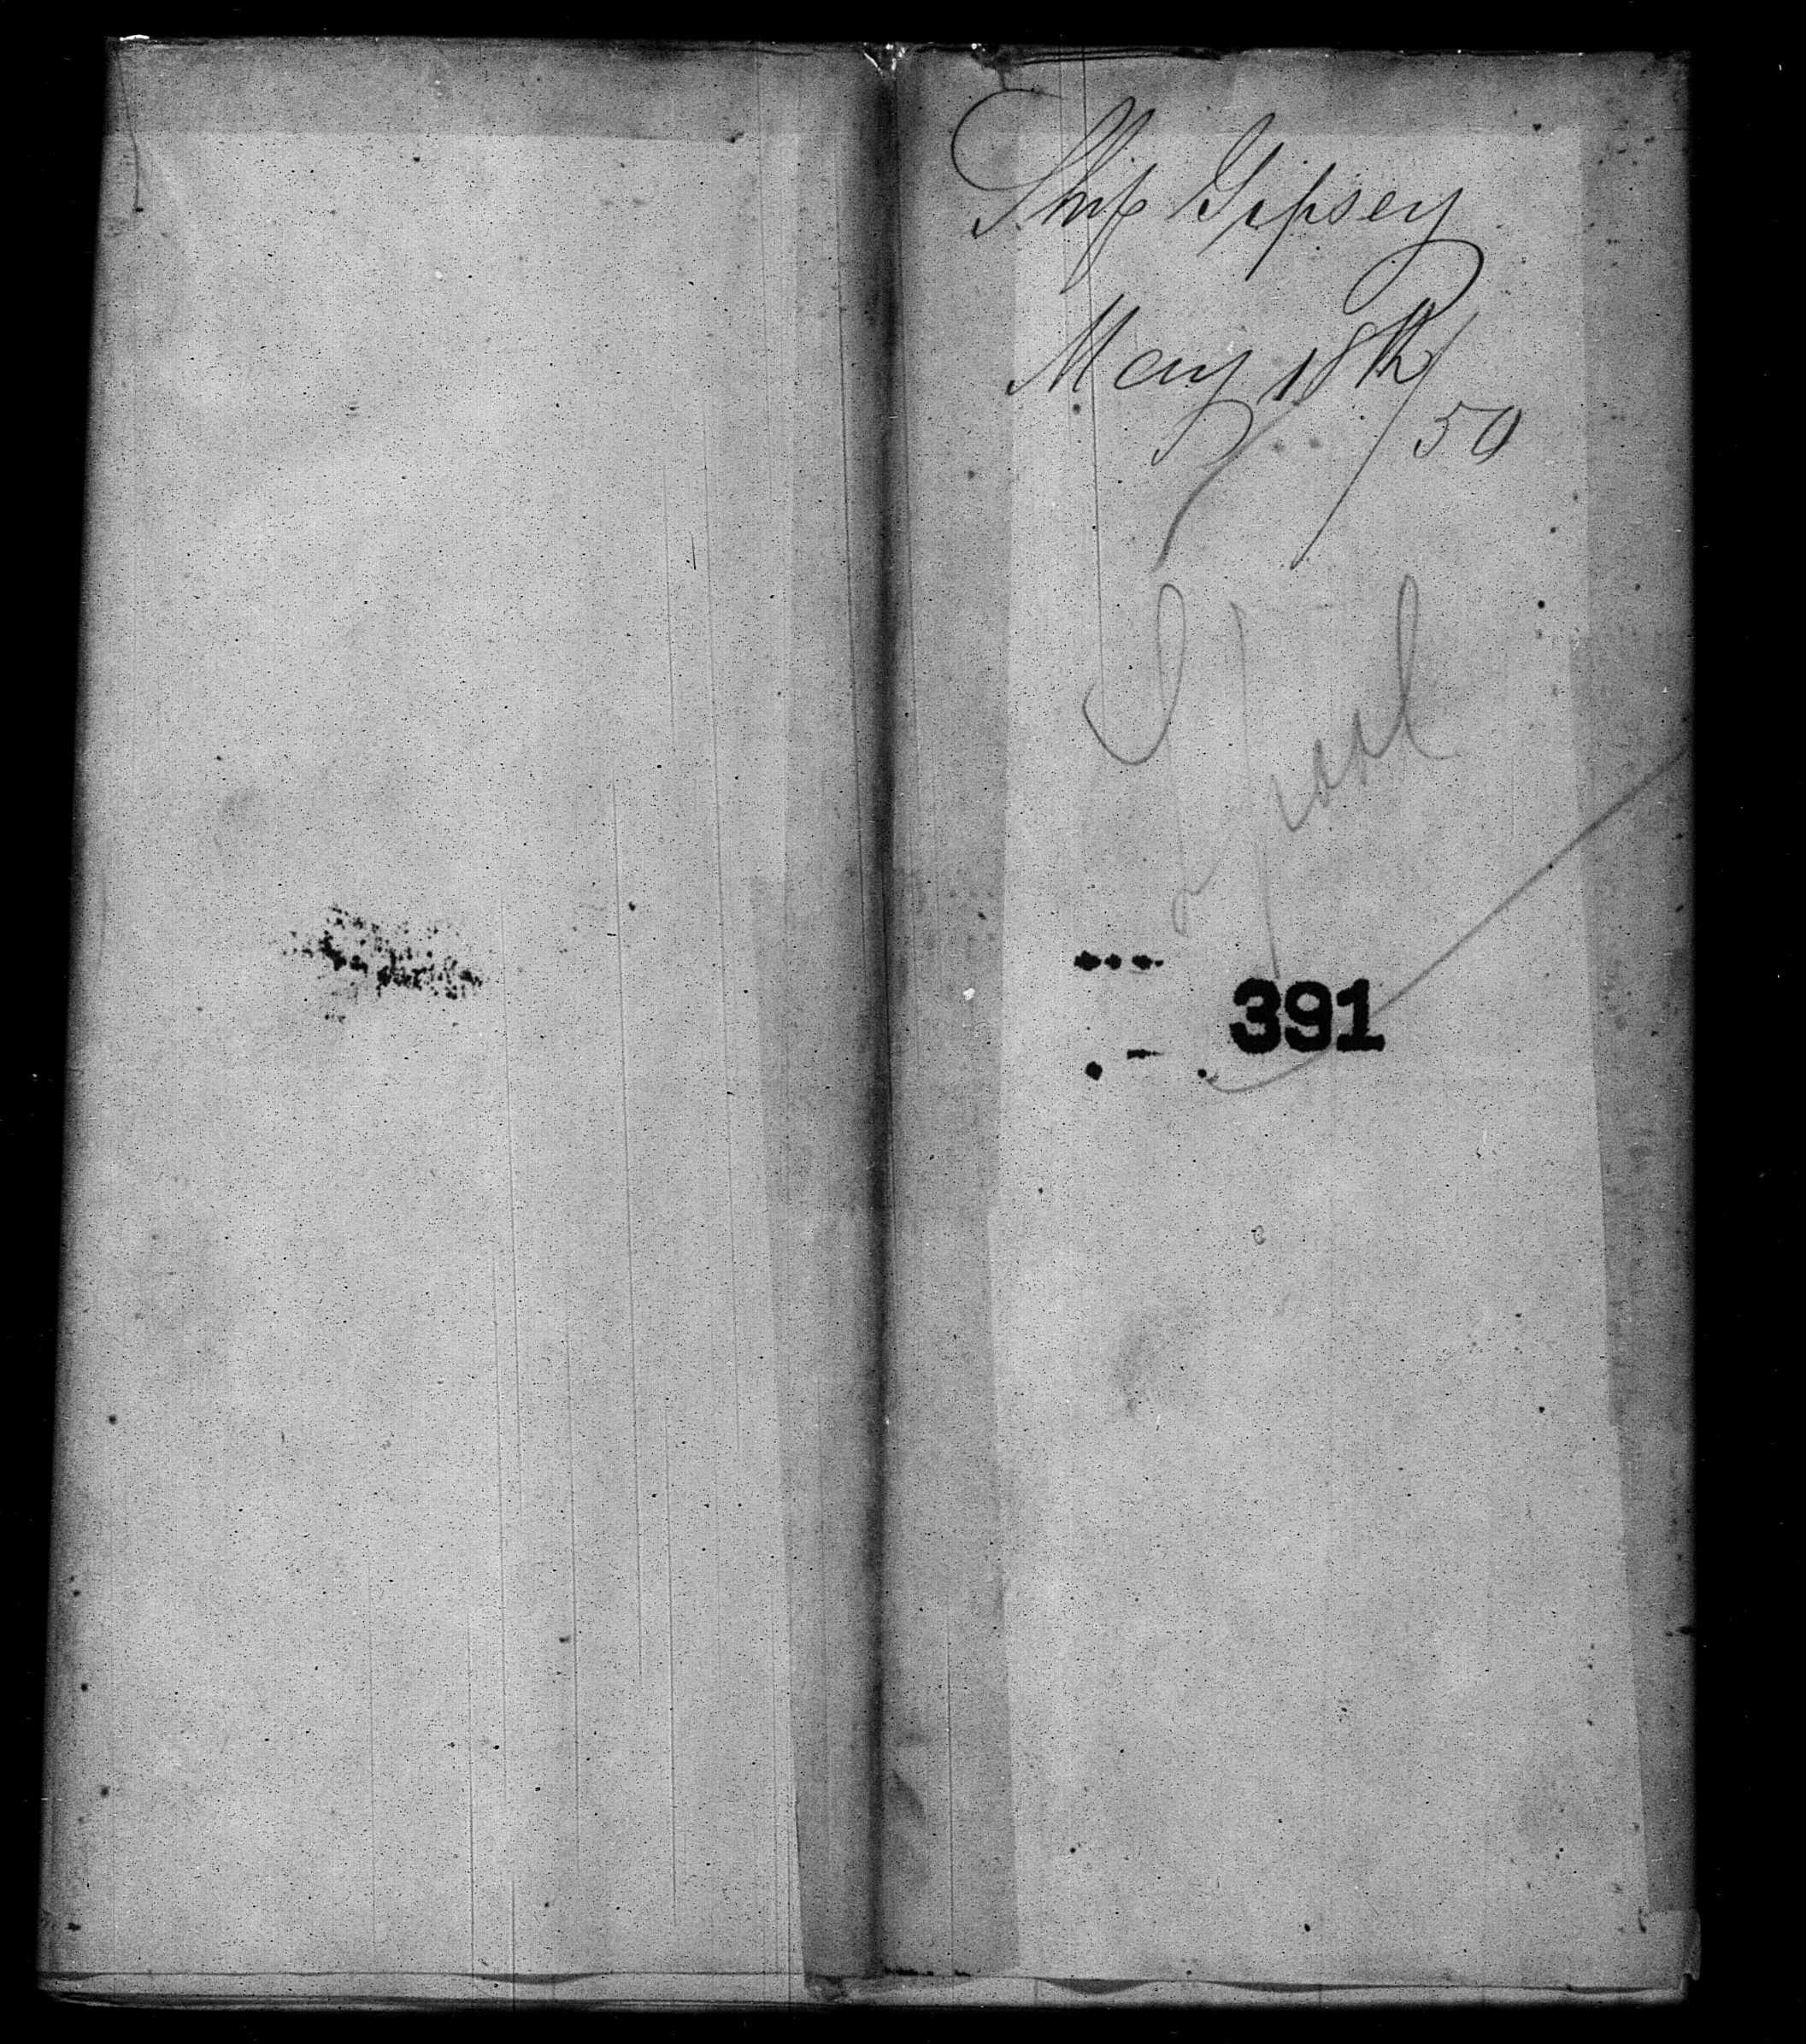 Ship Gipsey
May 18th/
50
391